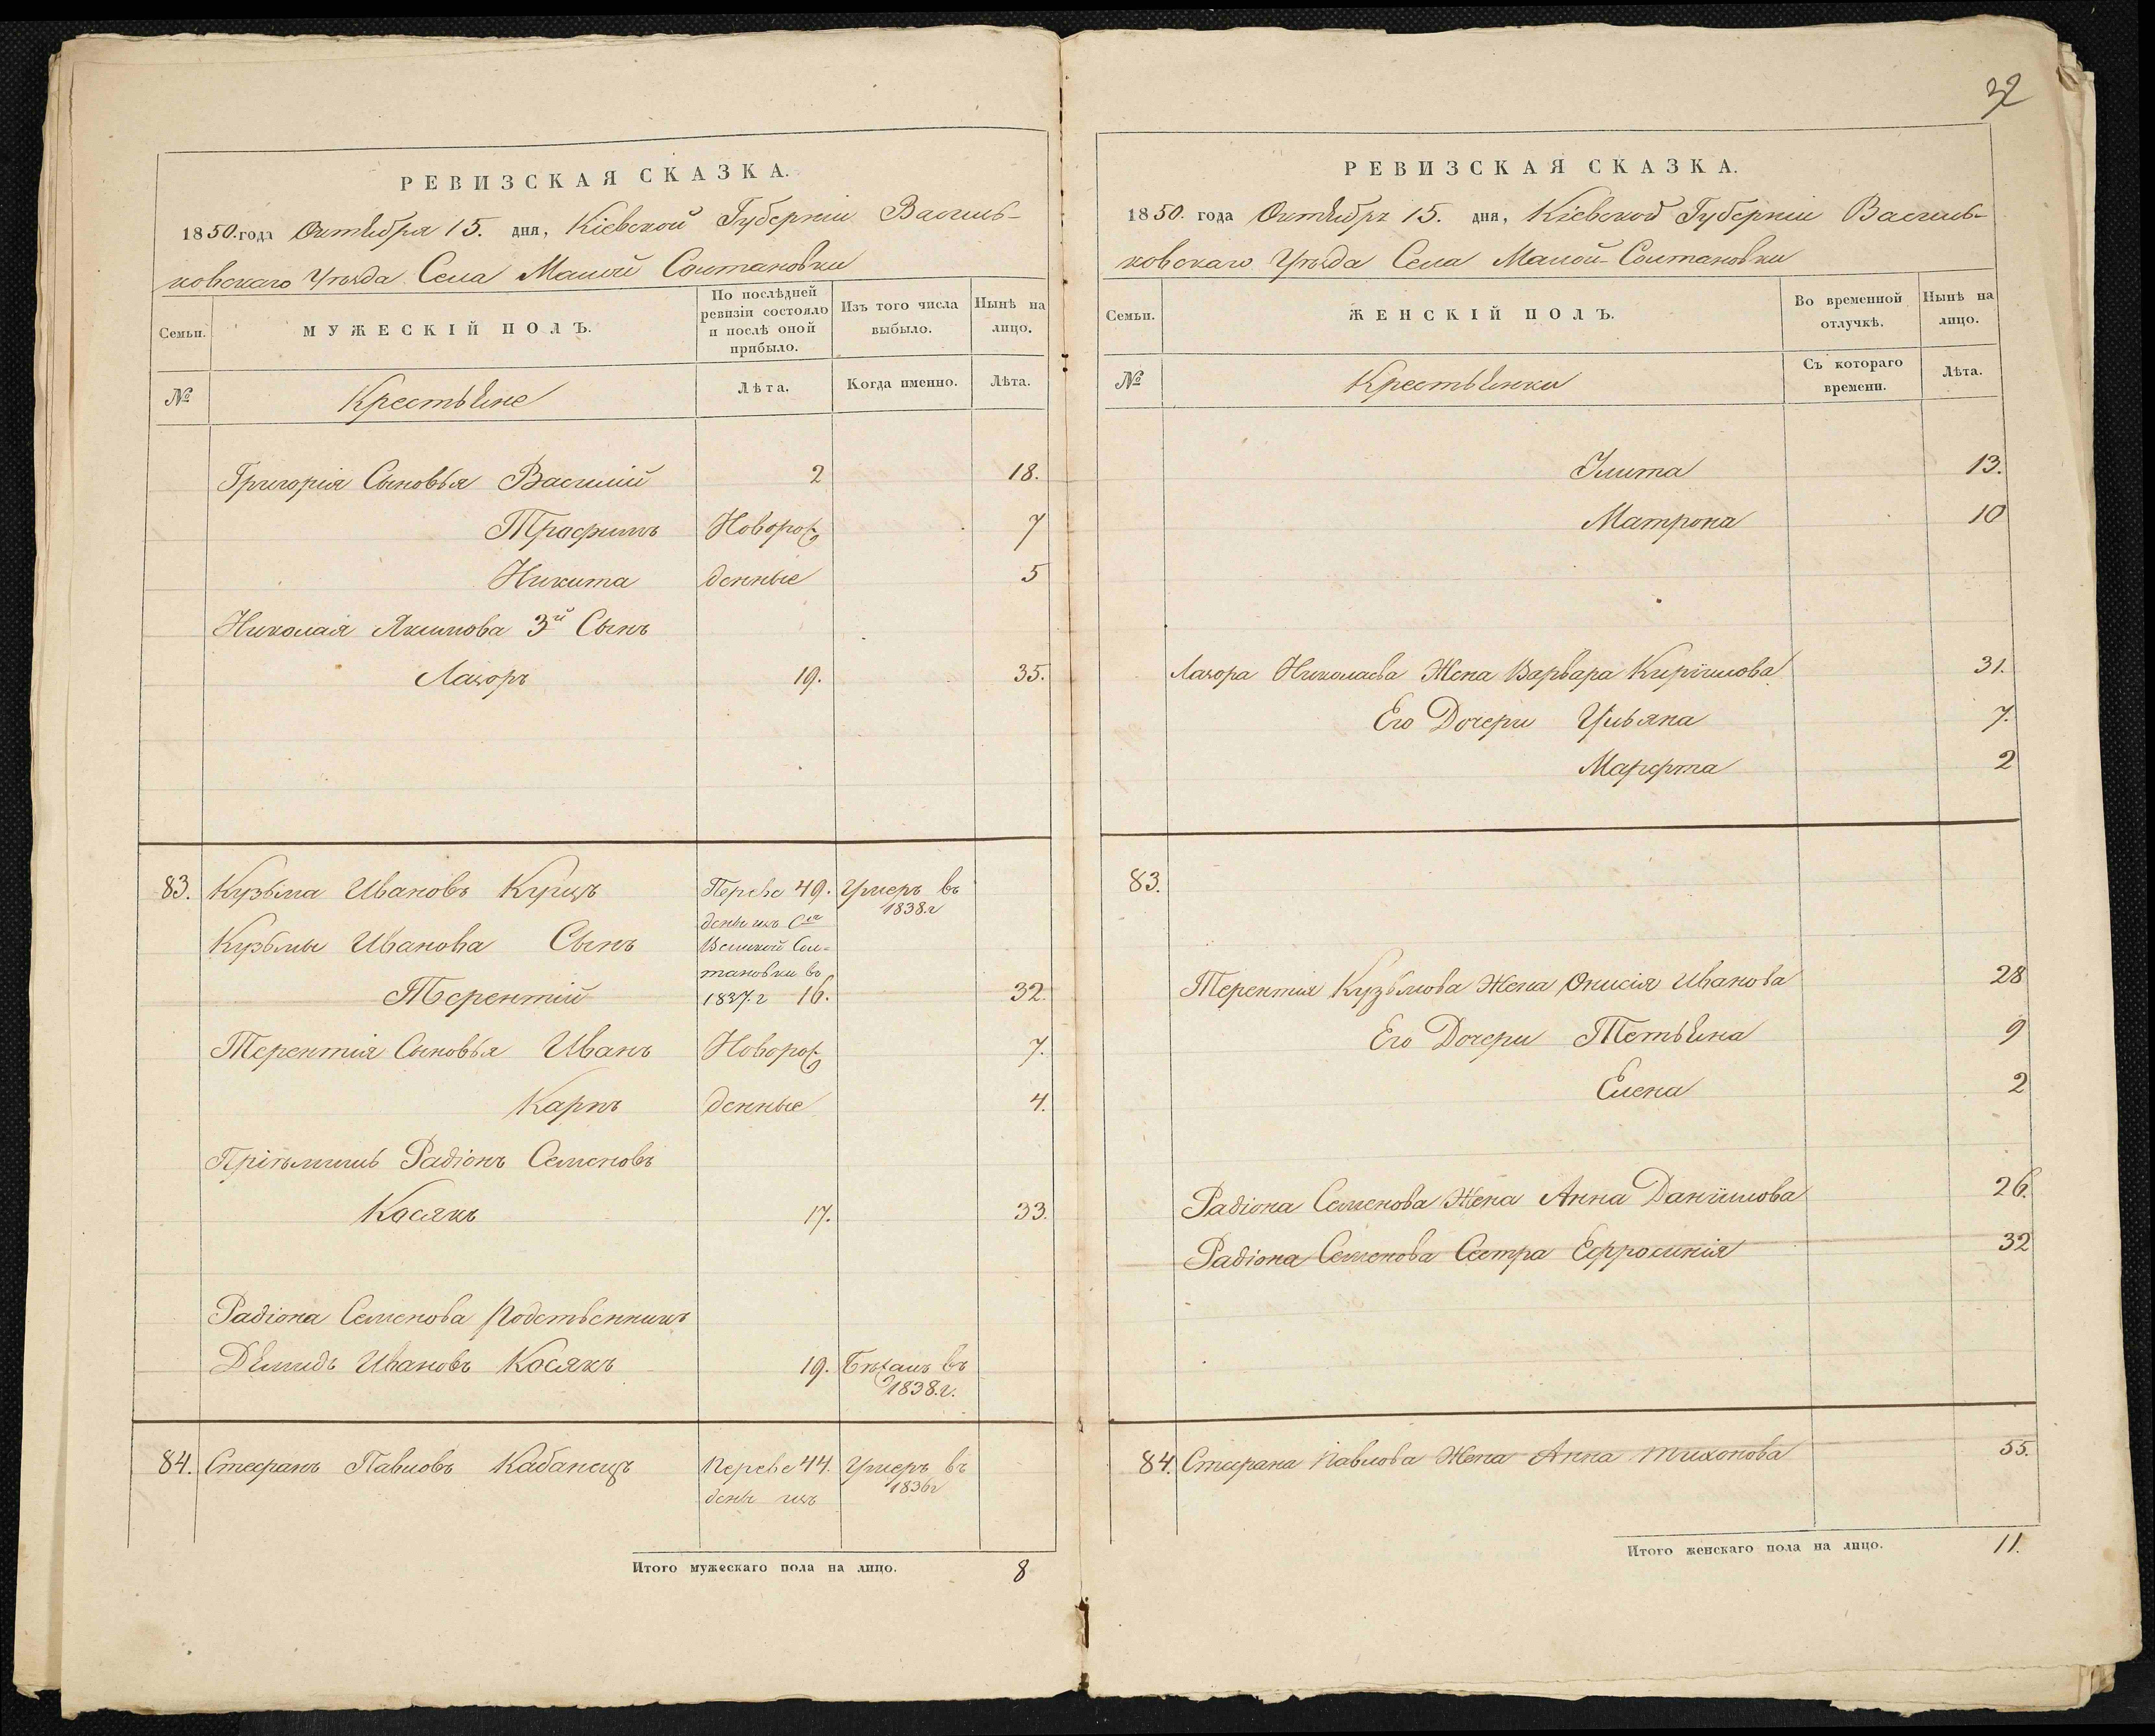 32
РЕВИЗСКАЯ СКАЗКА.
1850. года Октября 15. дня, Кіевской Губерніи Василь-
ковскаго Уѣзда Села Малой Солтановки
Семьи.
МУЖЕСКІЙ ПОЛЪ.
По послѣдней ревизіи состояло и послѣ оной прибыло.
Изъ того числа выбыло.
Нынѣ на лицо.
№
Крестьяне
Лѣта.
Когда именно.
Лѣта.
Григорія Сыновья Василій 2 18.
Трофимъ Новорож 7
Никита денные 5
Николая Якимова 3й Сынъ
Лазоръ 19. 35.
83. Кузьма Ивановъ Куцъ Переве 49. Умеръ въ
дены изъ Сла 1838.г
Кузьмы Иванова Сынъ Великой Сол=
тановки въ
Терентій 1837.г 16. 32.
Терентія Сыновья Иванъ Новорож 7.
Карпъ денные 4.
Пріѣмышъ Радіонъ Семеновъ
Косякъ 17. 33.
Радіона Семенова Родственникъ
Демидъ Ивановъ Косякъ 19. Бѣжалъ въ
1838.г.
84. Стефанъ Павловъ Кабанецъ Переве 44. Умеръ въ
дены изъ 1836г
Итого мужескаго пола на лицо. 8
РЕВИЗСКАЯ СКАЗКА.
1850. года Октября 15. дня, Кіевской Губерніи Василь-
ковскаго Уѣзда Села Малой-Солтановки
Семьи.
ЖЕНСКІЙ ПОЛЪ.
Во временной отлучкѣ.
Нынѣ на лицо.
№
Крестьянки
Съ котораго времени.
Лѣта.
Улита 13.
Матрона 10
Лазора Николаева Жена Варвара Кирїилова 31.
Его Дочери Ульяна 7.
Марфта 2
83.
Терентія Кузьмова Жена Онисія Иванова 28
Его Дочери Тетьяна 9
Елена 2
Радіона Семенова Жена Анна Данїилова 26.
Радіона Семенова Сестра Ефросинія 32
84. Стефана Павлова Жена Анна Тихонова 55.
Итого женскаго пола на лицо. 11.